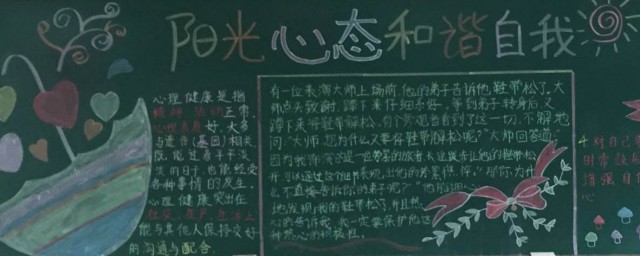 阳光心态和谐自我
心理健康是指
精神、活动正常、
心理素质好。大多
与遗传(基因)相关
既能过着平平淡
淡的日子,也能经受
各种事情的发生。
心理健康突出在
社交、生产、生活上
能与其他人保持交好
的沟通与配合
有一位表演大师上场前,他的弟子告诉他鞋带松了。大
师点头致谢,蹲下来仔细系好。等到弟子转身后,又
蹲下来将鞋带解松。有个旁观者看到了这一切,不解地
问:"大师,您为什么又要将鞋带解松呢?"大师回答道:
因为我饰演的是一位劳累的旅者,长途跋涉让他的鞋带松
开,可以通过这个细节表现出他的劳累
么不直接告诉你的弟子呢?"
地发现我的鞋带松了,并且热
心的告诉我,我一定要保护他这
种热心的积极性。
4 对自己
时常鼓
增强自信
心